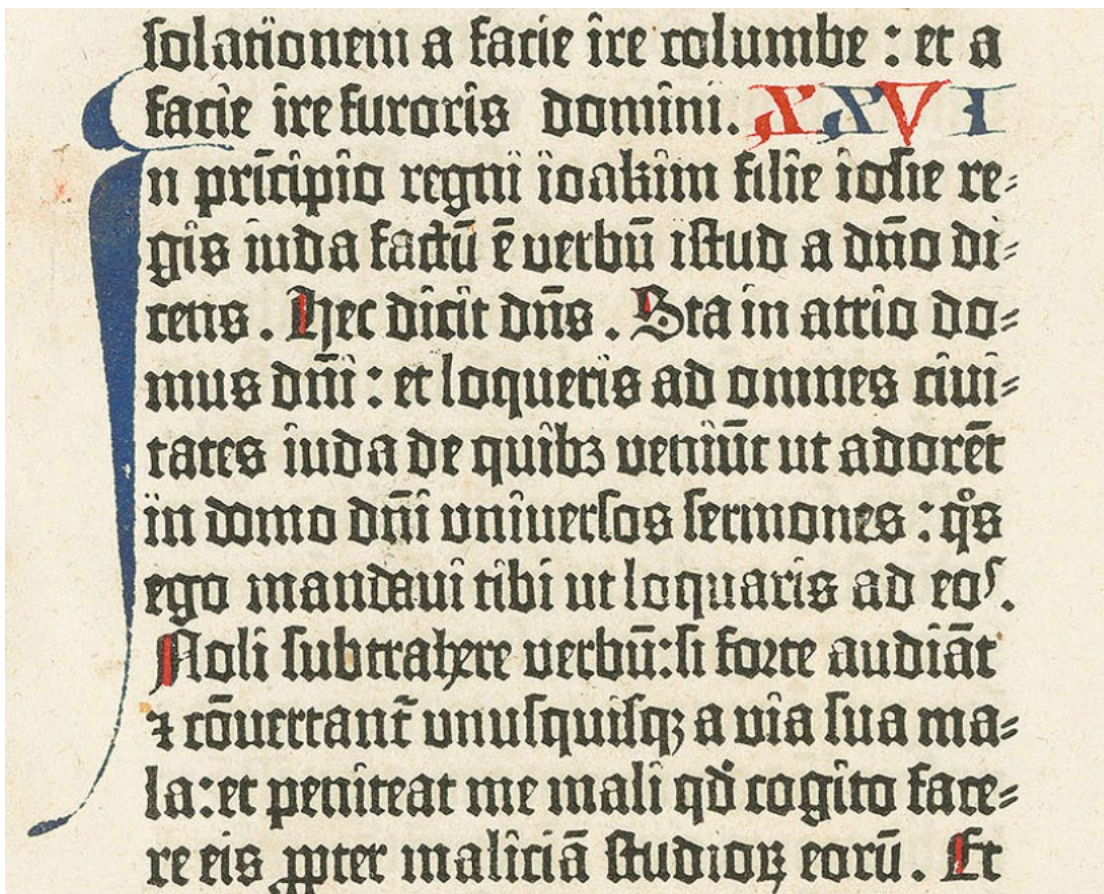 solationem a facie ire columbe : et a
facie ire furoris domini. XXVI
In prīcipio regni ioakim filie iosie re⸗
gis iuda factū ē verbū istud a dn̄o di⸗
cens . Hec dicit dn̄s . Sta in atrio do⸗
mus dn̄i : et loqueris ad omnes civi⸗
tates iuda de quibꝫ veniūt ut adorēt
in domo dn̄i universos sermones : qͦs
ego mandaui tibi ut loquaris ad eos .
Noli subtrahere verbū : si forte audiāt
⁊ cōuertant̄ unusquisqꝫ a via sua ma⸗
la : et peniteat me mali qđ cogito face⸗
re eis ꝓpter maliciā studioꝝ eorū . Et